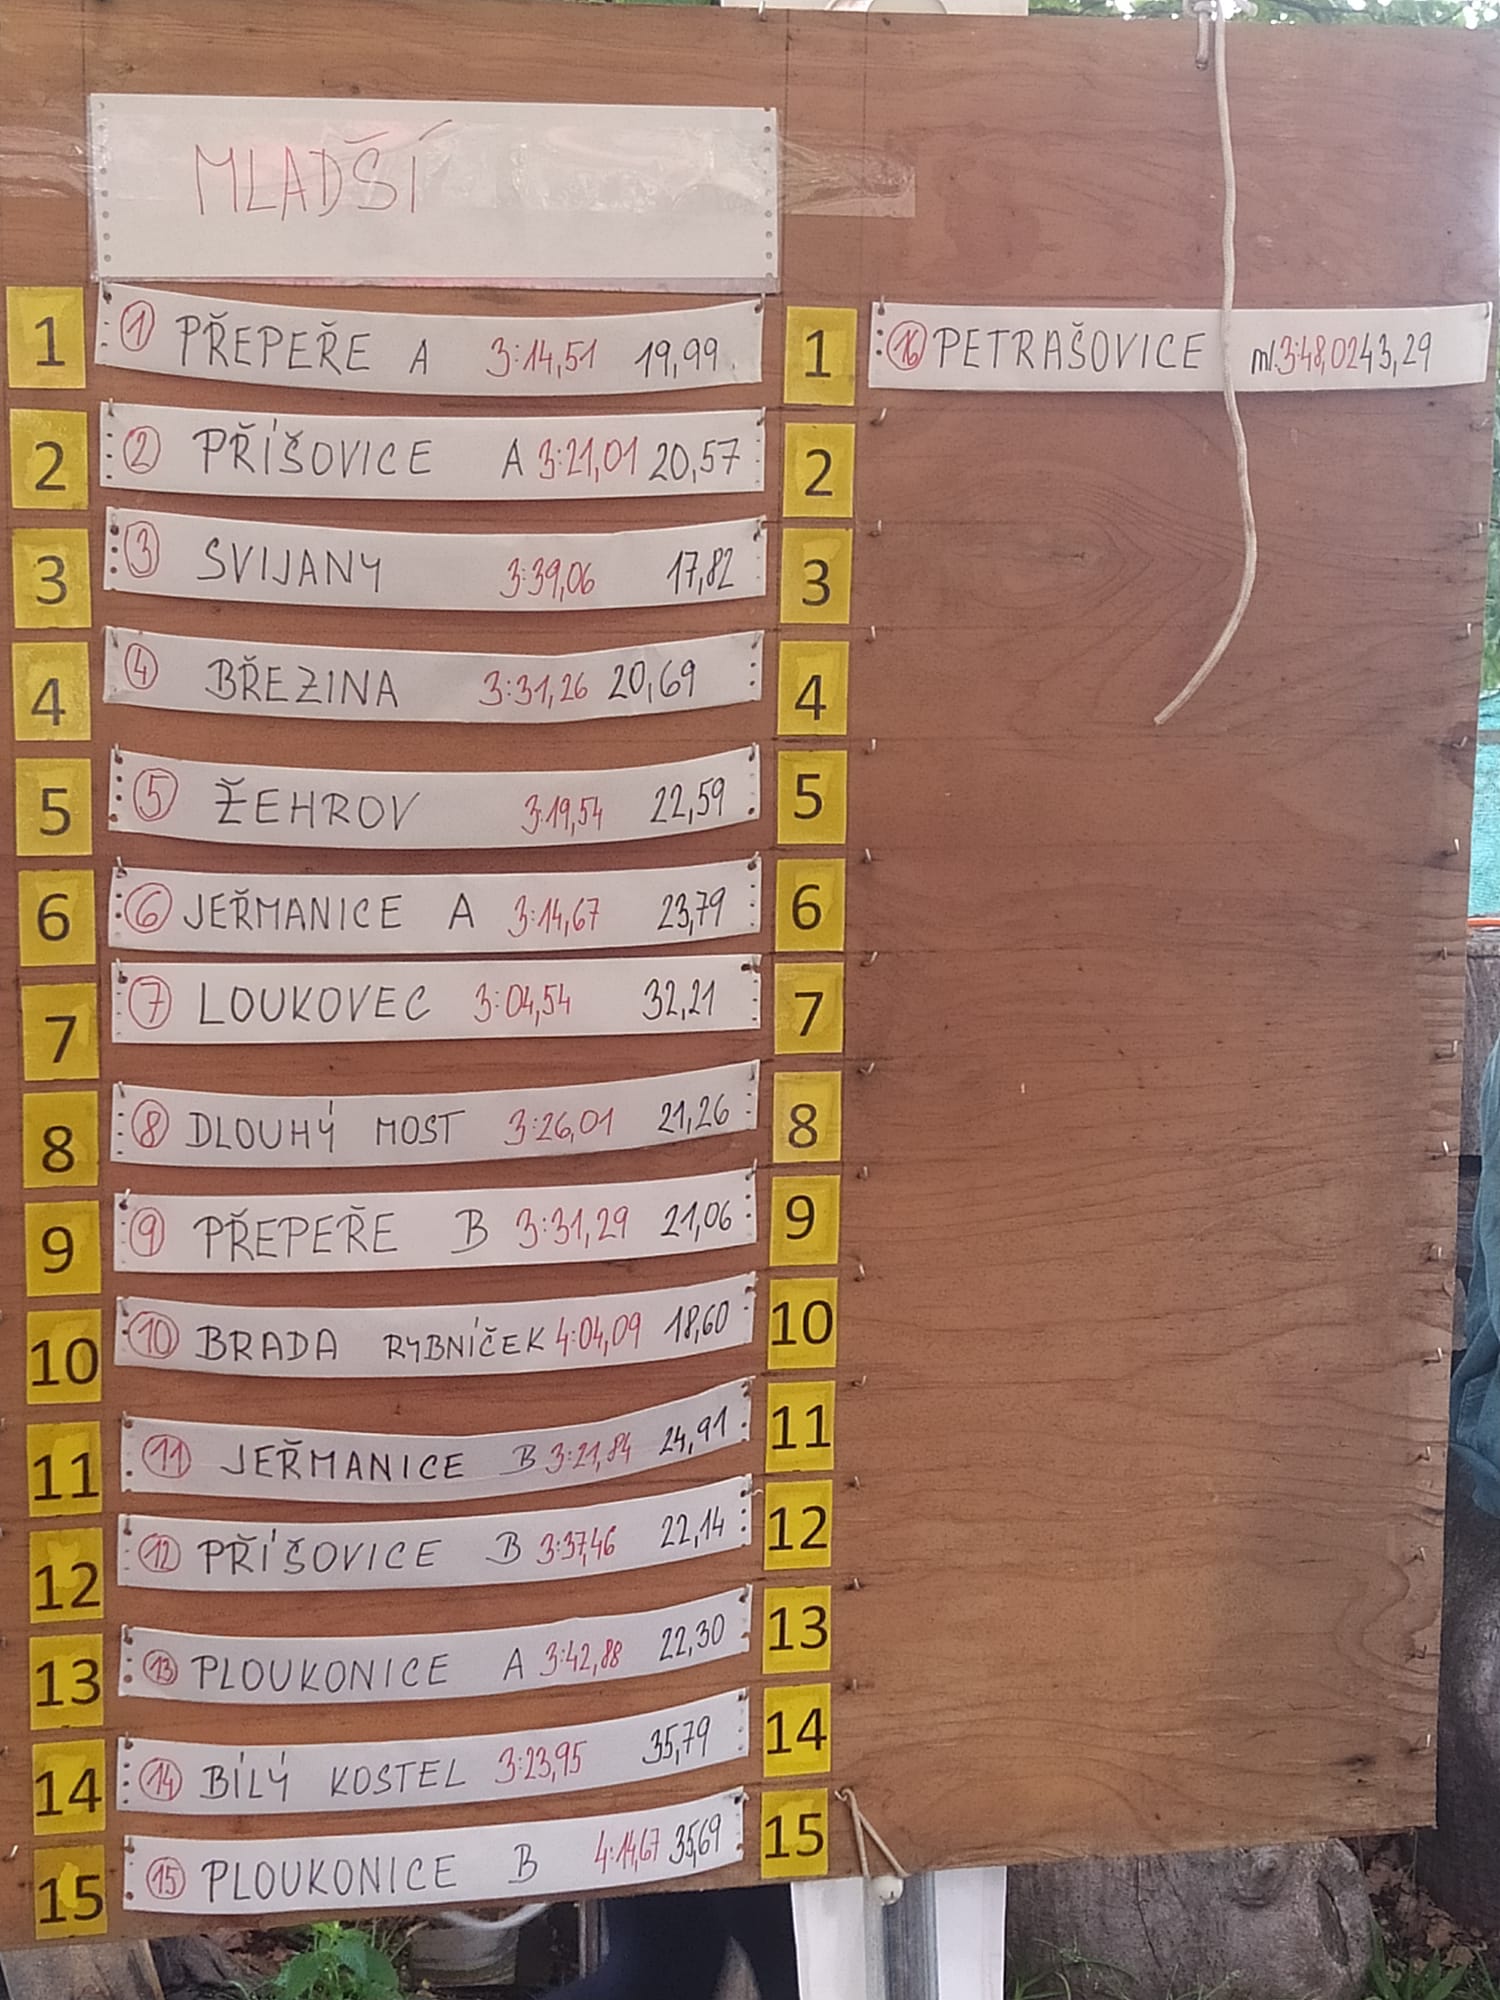 MLADŠÍ
1 ① PŘEPEŘE A 3:14,51 19,99
2 ② PŘÍŠOVICE A 3:21,01 20,57
3 ③ SVIJANY 3:39,06 17,82
4 ④ BŘEZINA 3:31,26 20,69
5 ⑤ ŽEHROV 3:19,54 22,59
6 ⑥ JEŘMANICE A 3:14,67 23,79
7 ⑦ LOUKOVEC 3:04,54 32,21
8 ⑧ DLOUHÝ MOST 3:26,01 21,26
9 ⑨ PŘEPEŘE B 3:31,29 21,06
10 ⑩ BRADA RYBNÍČEK 4:04,09 18,60
11 ⑪ JEŘMANICE B 3:21,84 24,91
12 ⑫ PŘÍŠOVICE B 3:37,46 22,14
13 ⑬ PLOUKONICE A 3:42,88 22,30
14 ⑭ BÍLÝ KOSTEL 3:23,95 35,79
15 ⑮ PLOUKONICE B 4:14,67 35,69
1 ⑯ PETRAŠOVICE ml. 3:48,02 43,29
2
3
4
5
6
7
8
9
10
11
12
13
14
15